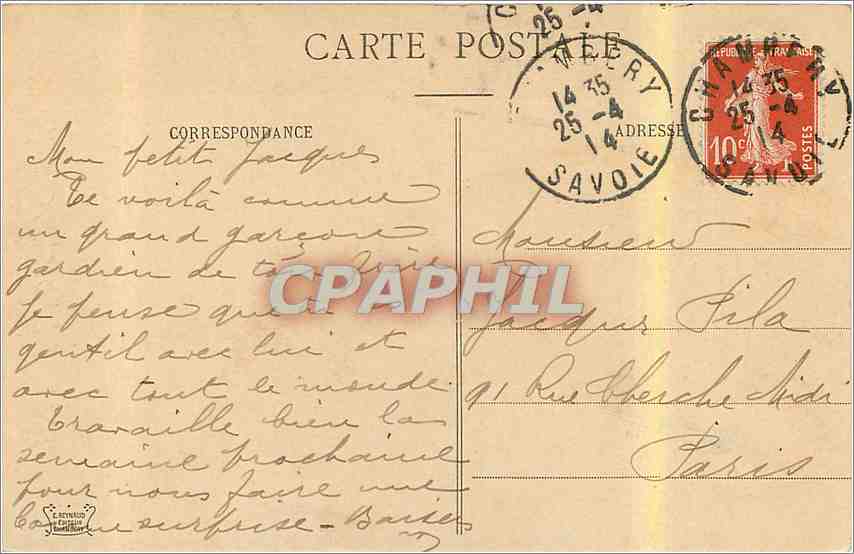 CARTE POSTALE
CORRESPONDANCE
Mon petit Jacques
Te voilà comme
un grand garçon
gardien de ton Père
Je pense que tu es
gentil avec lui et
avec tout le monde.
Travaille bien la
semaine prochaine
pour nous faire une
bonne surprise - Baisers
E. REYNAUD
EDITEUR
CHAMBERY
ADRESSE
Monsieur
Jacques Pila
91 Rue Cherche Midi
Paris
CHAMBERY
14 35
25 -4
14
SAVOIE
CHAMBERY
14 35
25 -4
14
SAVOIE
25 -4
REPUBLIQUE FRANÇAISE
10c
POSTES
CPAPHIL